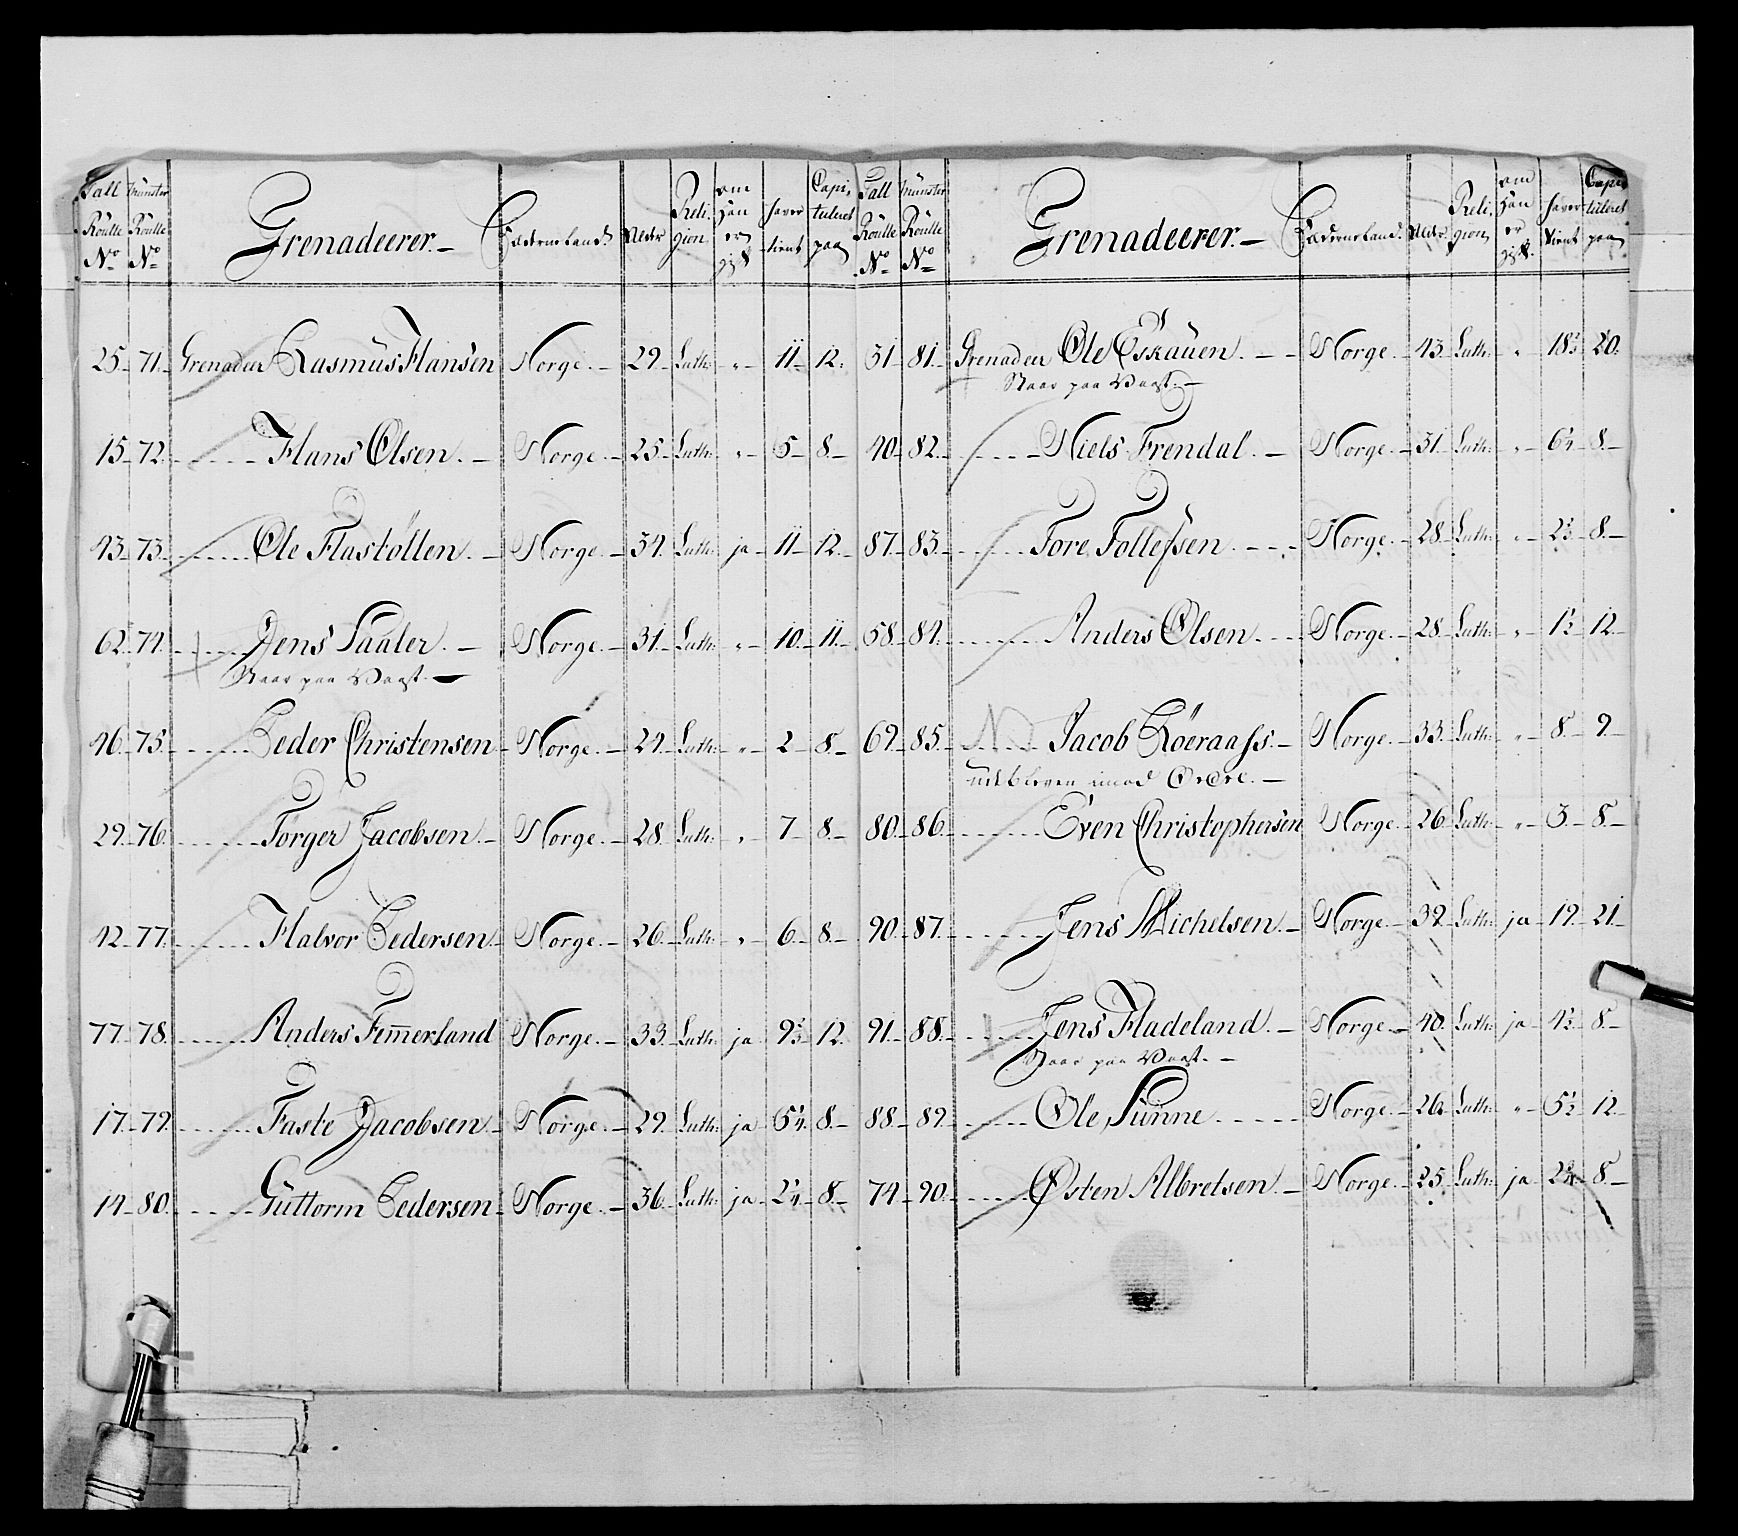 Tall Roulle No | Münster Roulle No | Grenadeerer. | Fæderneland | Alder | Religion | om han er gift | haver tient | Capituleret paa
25. 71. Grenadeer Rasmus Hansen Norge. 29. Luth: „ 11. 12.
15. 72. Hans Olsen. Norge. 25. Luth: „ 5. 8.
43. 73. Ole Hastølten. Norge. 34. Luth: ja 11. 12.
62. 74. Jens Saaler. Norge. 31. Luth: „ 10. 11.
Staar paa Vagt.
46. 75. Peder Christensen Norge. 24. Luth: „ 2. 8.
29. 76. Torger Jacobsen. Norge. 28. Luth: „ 7. 8.
42. 77. Halvor Pedersen. Norge. 26. Luth: „ 6. 8.
77. 78. Anders Femerland Norge. 33. Luth: ja 9½ 12.
17. 79. Taste Jacobsen. Norge. 29. Luth: ja 6¼ 8.
14. 80. Guttorm Pedersen. Norge. 36. Luth: ja 2¼ 8.
Tall Roulle No | Münster Roulle No | Grenadeerer. | Fæderneland. | Alder | Religion | om han er gift. | haver tient | Capituleret paa
31. 81. Grenadeer Ole Eskauen. Norge. 43. Luth: „ 18½ 20.
Staar paa Vagt.
40. 82. Niels Frendal. Norge. 31. Luth: „ 6¼ 8.
87. 83. Tore Tollefsen. Norge. 28. Luth: „ 2½ 8.
58. 84. Anders Olsen. Norge. 28. Luth: „ 1½ 12.
69. 85. Jacob Röeraass. Norge. 33. Luth: „ 8. 9.
udbleven imod Ordre.
80. 86. Even Christophersen Norge. 26. Luth: „ 3. 8.
90. 87. Jens Michelsen. Norge. 39. Luth: ja 19. 21.
91. 88. Jens Fladeland. Norge. 40. Luth: ja 4½ 8.
Staar paa Vagt.
88. 89. Ole Sunne. Norge. 26. Luth: „ 5½ 12.
74. 90. Østen Albretsen. Norge. 25. Luth: ja 2¼ 8.